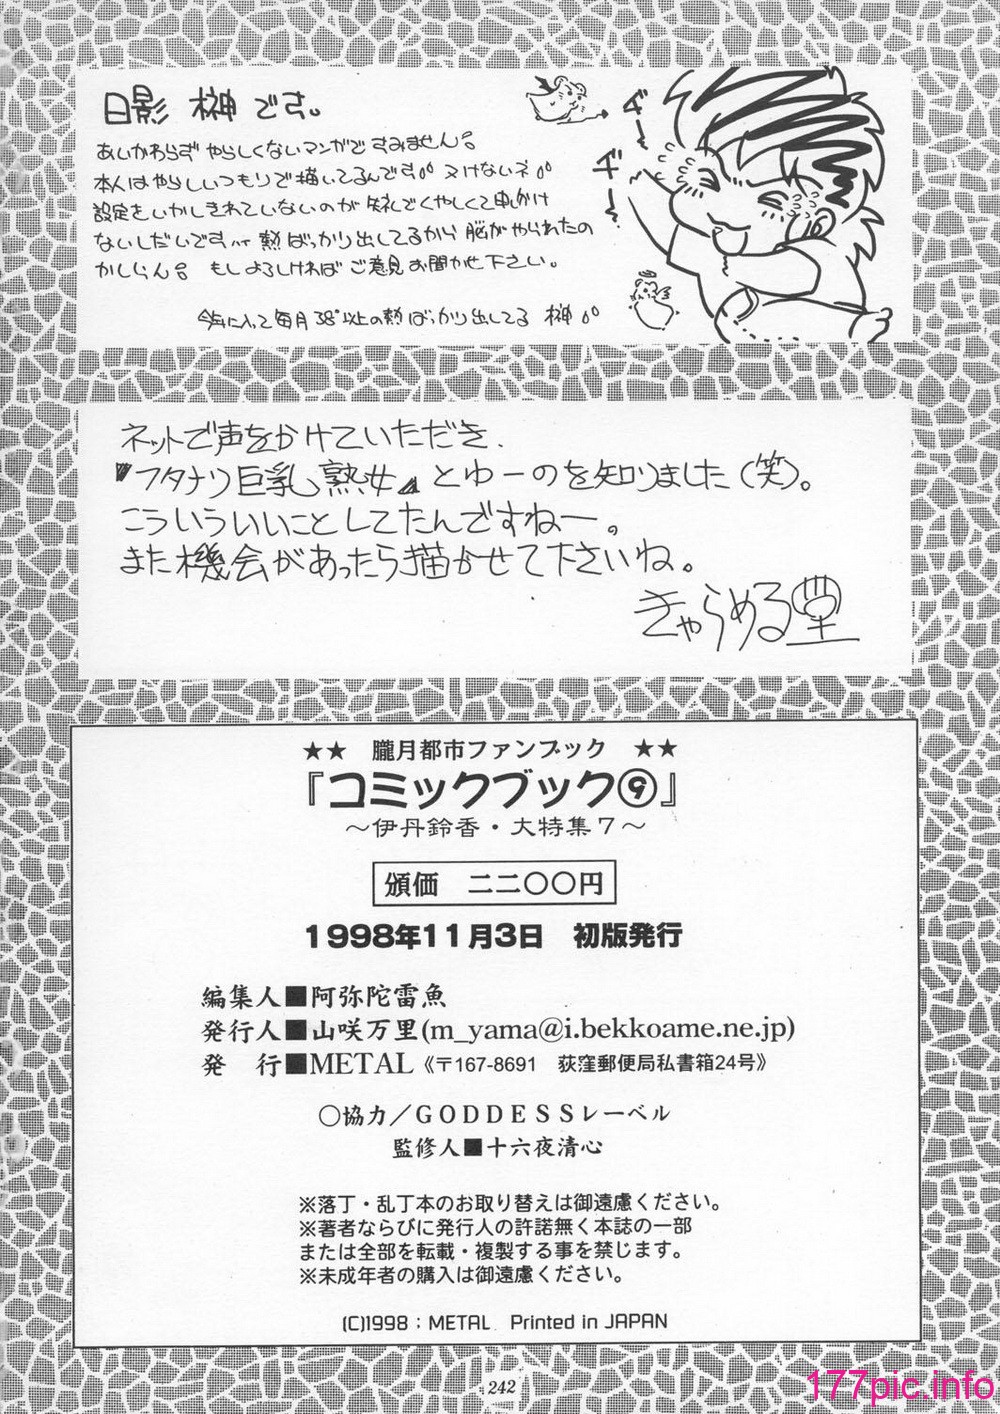 日影 榊です。
あいかわらずやらしくないマンガですみません。
本人はやらしいつもりで描いてるんです。ヌけないネ。
設定をいかしきれていないのが
くやしくて申しわけ
ないしだいです 熱ばっかり出してるから脳がやられたの
かしらん。 もしよろしければご意見お聞かせ下さい。
今年に入って毎月38°以上の熱ばっかり出してる 榊
ギー
ギー
ネットで声をかけていただき、
『フタナリ巨乳熟女』とゆーのを知りました(笑)。
こういういいことしてたんですねー。
また機会があったら描かせて下さいね。
きゃらめる堂
★★ 朧月都市ファンブック ★★
『コミックブック⑨』
〜伊丹鈴香・大特集7〜
頒価 二二〇〇円
1998年11月3日 初版発行
編集人■阿弥陀雷魚
発行人■山咲万里(m_yama@i.bekkoame.ne.jp)
発 行■METAL《〒167-8691 荻窪郵便局私書箱24号》
○協力/GODDESSレーベル
監修人■十六夜清心
※落丁・乱丁本のお取り替えは御遠慮ください。
※著者ならびに発行人の許諾無く本誌の一部
または全部を転載・複製する事を禁じます。
※未成年者の購入は御遠慮ください。
(C)1998:METAL Printed in JAPAN
242
177pic.info